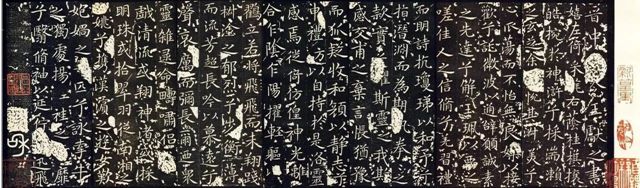 晉中書令王獻之書
嬉左倚采旄右蔭桂旗攘
皓捥於神滸兮采湍瀨
之玄芝余淑美兮
心振蕩而不怡無良媒以接
歡兮託微波以通辭願誠素
之先達兮解玉珮而要之
嗟佳人之信脩兮羌習禮
而明詩抗瓊珶以和予兮
指潛淵而為期執拳拳之
款實兮懼斯靈之我欺
感交甫之棄言悵猶豫
而狐疑收和顏以靜志兮
申禮防以自持於是洛靈
感焉徙倚仿偟神光離
合乍陰乍陽擢輕軀以
鶴立若將飛而未翔踐
椒塗之郁烈兮步蘅薄
而流芳超長吟以慕遠兮
聲哀厲而彌長爾乃衆
靈雜遝命疇嘯侶或
戲清流或翔神渚或採
明珠或拾翠羽從南湘之
二姚攜漢濱之遊女歎
匏媧之無匹兮詠牽牛
之獨處揚輕袿之猗靡
兮翳脩袖以延佇體迅飛